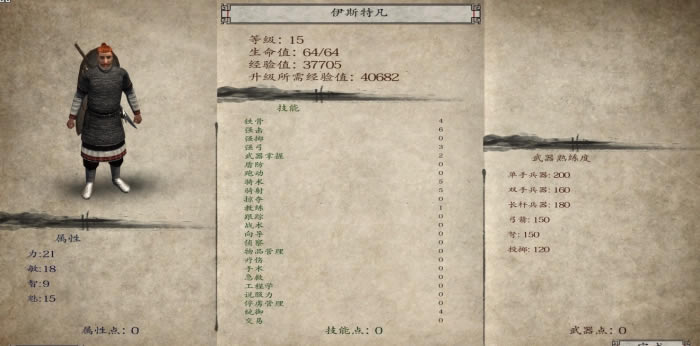 伊斯特凡
等级: 15
生命值: 64/64
经验值: 37705
升级所需经验值: 40682
技能
铁骨 4
强击 6
强掷 0
强弓 3
武器掌握 2
盾防 0
跑动 0
骑术 5
骑射 5
掠夺 0
教练 1
跟踪 0
战术 0
向导 0
侦察 0
物品管理 0
疗伤 0
手术 0
急救 0
工程学 0
说服力 0
俘虏管理 0
统御 4
交易 0
技能点: 0
属性
力:21
敏:18
智:9
魅:15
属性点: 0
武器熟练度
单手兵器: 200
双手兵器: 160
长杆兵器: 180
弓箭: 150
弩: 150
投掷: 120
武器点: 0